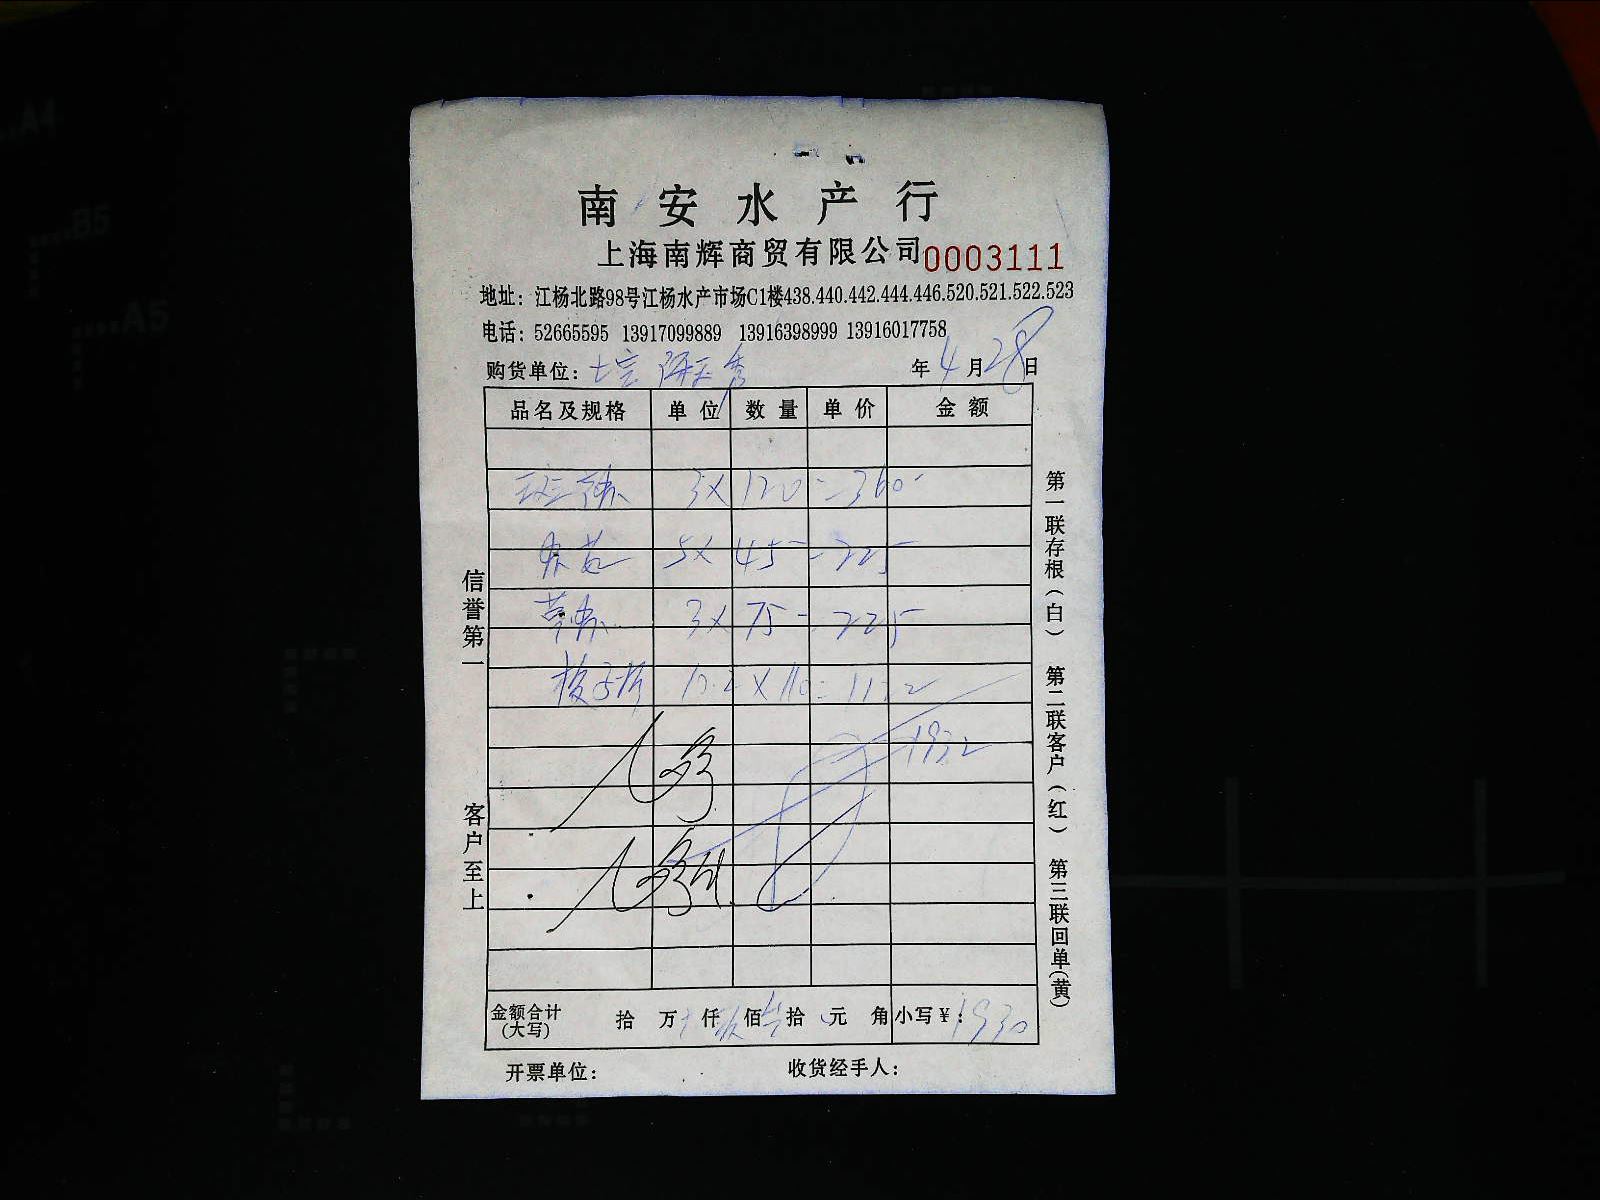 南安水产行
上海南辉商贸有限公司 0003111
地址：江杨北路98号江杨水产市场C1楼438.440.442.444.446.520.521.522.523
电话：52665595 13917099889 13916398999 13916017758
购货单位：
年4月28日
品名及规格 单位 数量 单价 金额
3×120=360-
5×45=225
3×75=225
梭子 10.2×110=1122
1932
金额合计(大写) 拾 万 仟 佰 拾 元 角 小写￥：1930
开票单位： 收货经手人：
信誉第一 客户至上
第一联存根(白) 第二联客户(红) 第三联回单(黄)